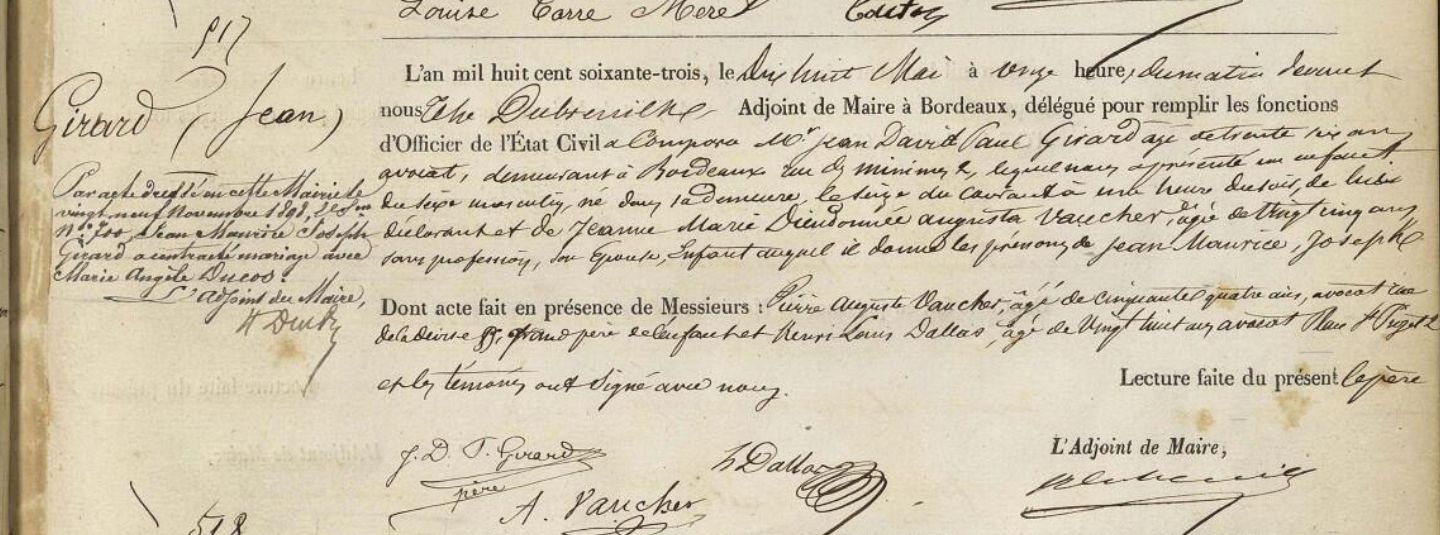 Louise Carre Mere
517
Girard (Jean)
Par acte dressé en cette Mairie le
vingt neuf Novembre 1898, 2e Son
No 700, Jean Maurice Joseph
Girard a contracté mariage avec
Marie Angèle Ducos.
L'adjoint du Maire,
L'an mil huit cent soixante-trois, le Dix huit Mai à onze heures du matin devant
nous Adjoint de Maire à Bordeaux, délégué pour remplir les fonctions
d'Officier de l'État Civil a Comparu Mr Jean David Paul Girard agé de trente six ans
avocat, demeurant à Bordeaux rue des minimes, lequel nous a présenté un enfant
du sexe masculin, né dans sa demeure, le seize du courant à une heure du soir, de lui
déclarant et de Jeanne Marie Dieudonnée augusta Vaucher, agée de Vingt cinq ans
sans profession, son Epouse, Enfant auquel il donne les prénoms de Jean Maurice, Joseph
Dont acte fait en présence de Messieurs : Pierre Auguste Vaucher, âgé de cinquante quatre ans, avocat rue
de la devise, grand père de l'enfant et Henri Louis Dallas, âgé de Vingt huit ans avocat Place
Lecture faite du présent le père
et les témoins ont Signé avec nous.
L'Adjoint de Maire,
J. D. P. Girard
père
h Dallas
A. Vaucher
518